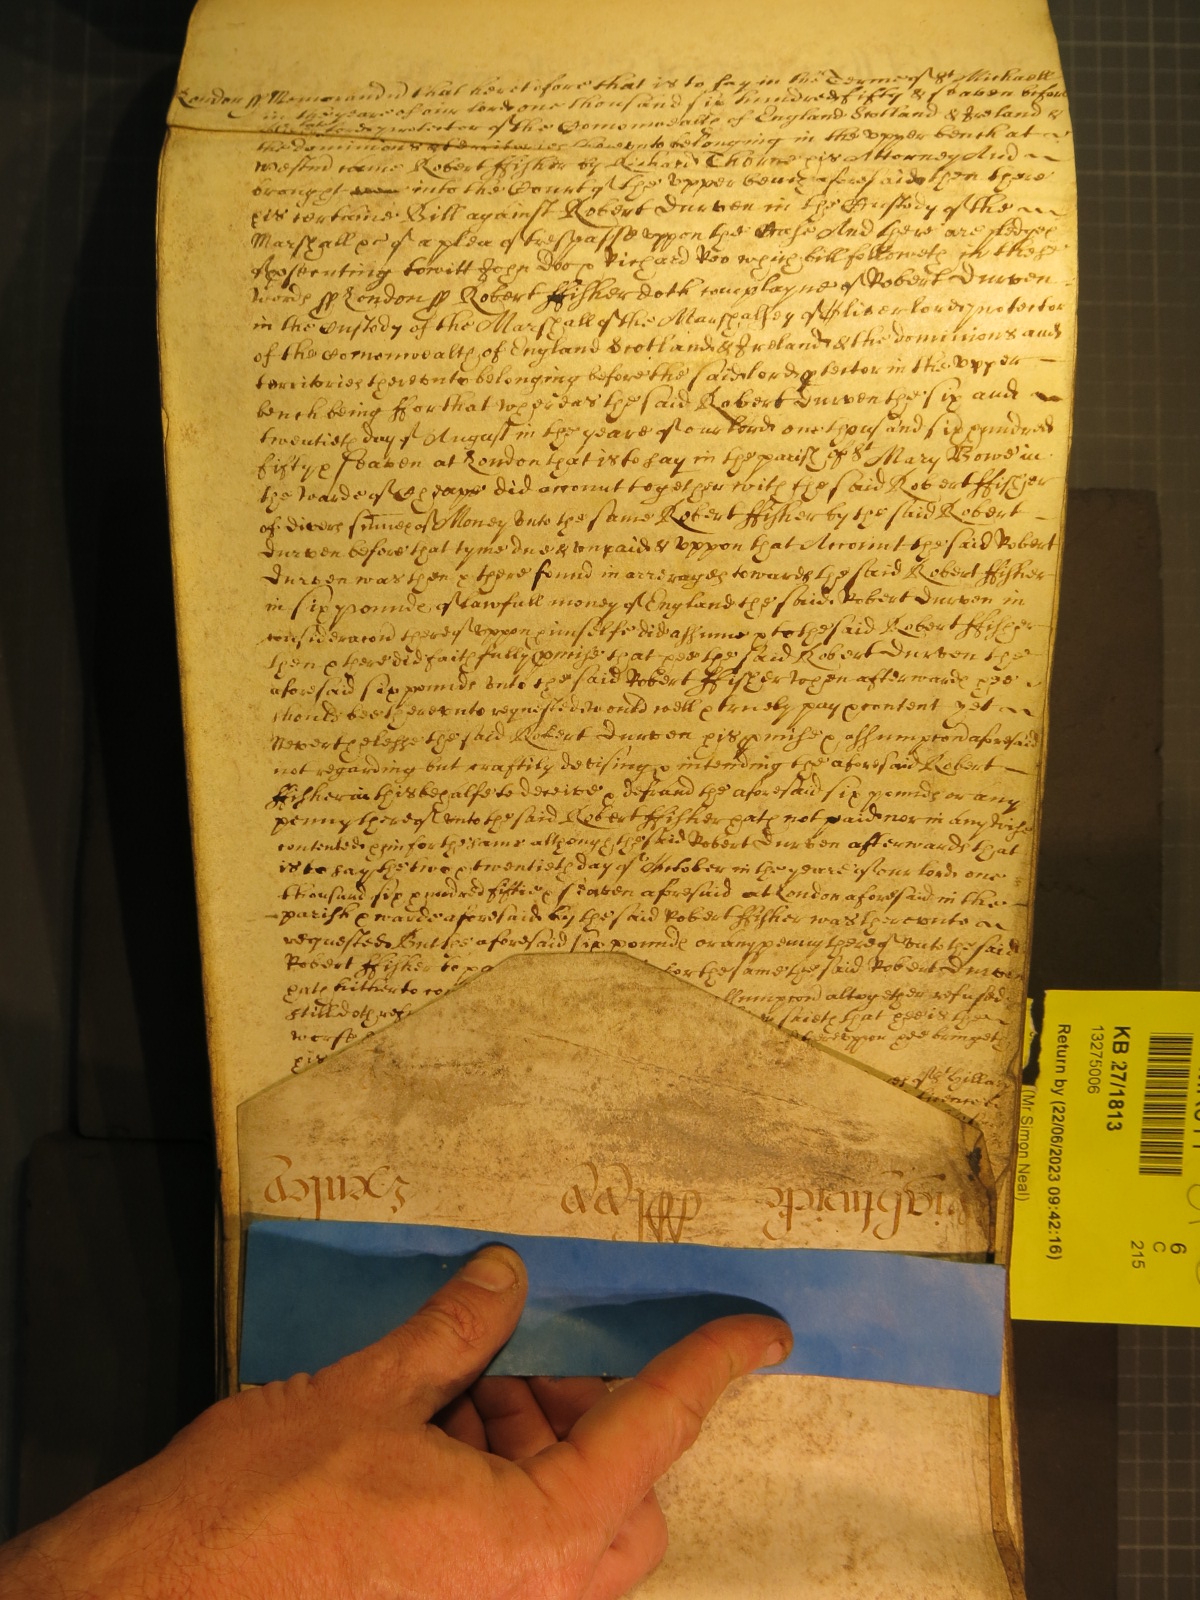 London ss Memorandd that heretofore that is to say in the Terme of St Michaell
in the yeare of our lord one thousand six hundred fifty & seaven before
lord protector of the Comonwealth of England Scotland & Ireland &
the dominions & territories thereunto belonging in the upper bench at
westmr came Robert ffisher by Richard Thorne his Attorney And
brought into the Court of the upper bench aforesaid then there
his certaine Bill against Robert Durden in the Custody of the
Marshall &c of a plea of trespasse uppon the Case And there are pledges
of prosecuting towitt John Doo & Richard Roo which bill followeth in these
words ss London ss Robert ffisher doth complayne of Robert Durden
in the Custody of the Marshall of the Marshalsey of Oliver lord protector
of the comonwealth of England Scotland & Ireland & the dominions and
territories thereunto belonging before the said lord ptector in the upper
bench being ffor that whereas the said Robert Durden the six and
twentieth day of August in the yeare of our lord one thousand six hundred
fifty & seaven at London that is to say in the parish of St Mary Bowe in
the warde of Cheape did accout together with the said Robert ffisher
of divers summes of Money unto the same Robert ffisher by the said Robert
Durden before that tyme due & unpaid & uppon that Account the said Robert
Durden was then & there found in arrerages towards the said Robert ffisher
in six pounds of lawfull money of England the said Robert Durden in
consideracon thereof uppon himselfe did assume & to the said Robert ffisher
then & there did faithfully pmise that hee the said Robert Durden the
aforesaid six pounds unto the said Robert ffisher when afterwards hee
should bee thereunto requested would well & truely pay & content yet
Neverthelesse the said Robert Durden his pmise & assumpcond aforesaid
not regarding but craftily devising & intending the aforesaid Robert
ffisher in this behalfe to deceive & defraud the aforesaid six pounds or any
penny thereof unto the said Robert ffisher hath not paid nor in any wise
contented him for the same although the said Robert Durden afterwards that
is to say the two & twentieth day of October in the yeare of our lord one
thousand six hundred fiftie & seaven aforesaid at London aforesaid in the
parish & warde aforesaid by the said Robert ffisher was thereunto
requested But the aforesaid six pounds or any penny thereof unto the said
Robert ffisher to pa for the same the said Robert Durden
hath hitherto ssumpcond altogether refused
still doth ref saieth that hee is the
worse thereuppon hee bringeth
his
of St Hillary
KB 27/1813
13275006
Return by (22/06/2023 09:42:16)
(Mr Simon Neal)
6
C
215